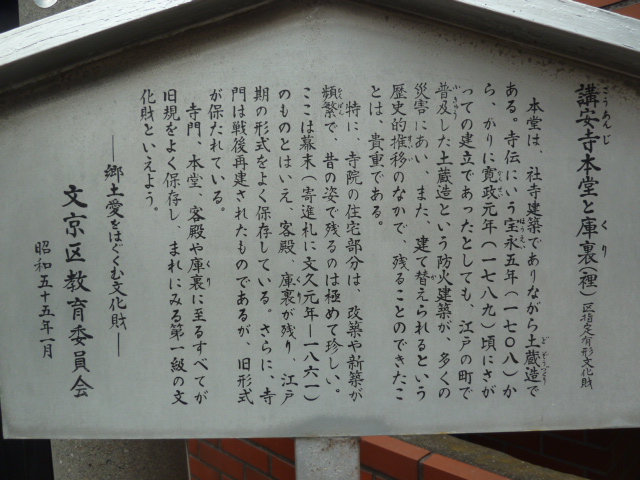 講安寺本堂と庫裏(裡) 区指定有形文化財
こうあんじ くり
本堂は、社寺建築でありながら土蔵造で
どぞうづくり
ある。寺伝にいう宝永五年(一七〇八)か
ほうえい
ら、かりに寛政元年(一七八九)頃にさが
かんせい
っての建立であったとしても、江戸の町で
普及した土蔵造という防火建築が、多くの
ふきゅう
災害にあい、また、建て替えられるという
歴史的推移のなかで、残ることのできたこ
とは、貴重である。
特に、寺院の住宅部分は、改築や新築が
頻繁で、昔の姿で残るのは極めて珍しい。
ひんぱん
ここは幕末(寄進札に文久元年―一八六一)
のものとはいえ、客殿、庫裏が残り、江戸
くり
期の形式をよく保存している。さらに、寺
門は戦後再建されたものであるが、旧形式
が保たれている。
寺門、本堂、客殿や庫裏に至るすべてが
くり
旧規をよく保存し、まれにみる第一級の文
化財といえよう。
―郷土愛をはぐくむ文化財―
文京区教育委員会
昭和五十五年一月